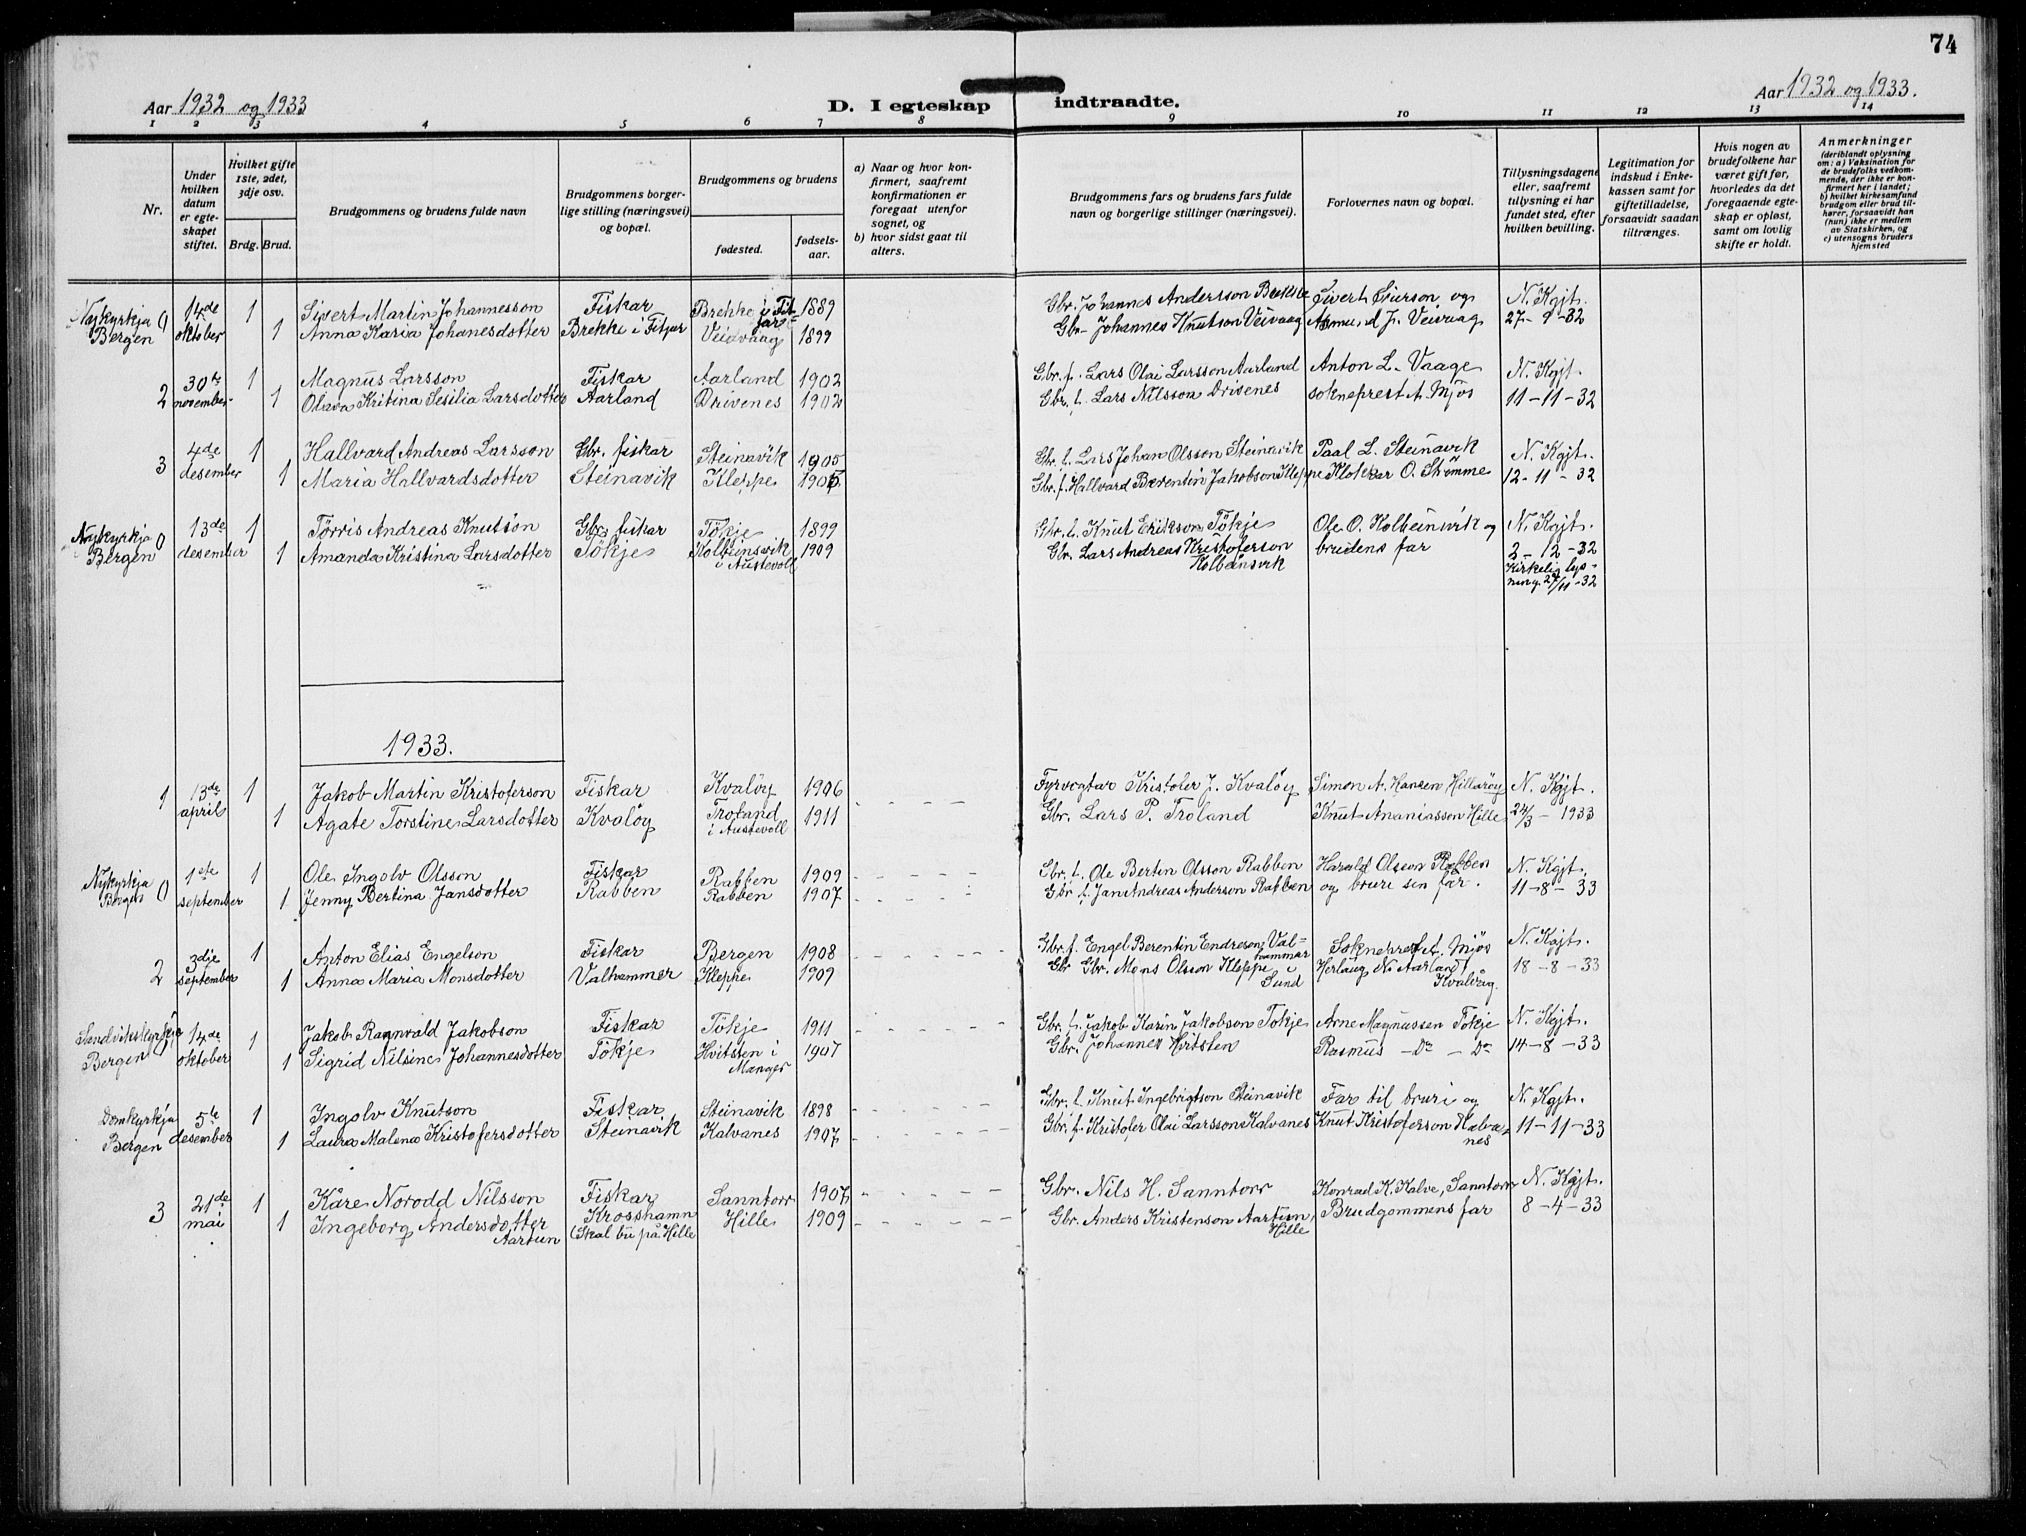 74
Aar 1932 og 1933
D. I egteskap indtraadte.
Aar 1932 og 1933.
1 2 3 4 5 6 7 8 9 10 11 12 13 14
Nr.
Under hvilken datum er egteskapet stiftet.
Hvilket gifte 1ste, 2det, 3dje osv.
Brdg. Brud.
Brudgommens og brudens fulde navn
Brudgommens borgerlige stilling (næringsvei) og bopæl.
Brudgommens og brudens
fødested.
fødselsaar.
a) Naar og hvor konfirmert, saafremt konfirmationen er foregaat utenfor sognet, og
b) hvor sidst gaat til alters.
Brudgommens fars og brudens fars fulde navn og borgerlige stillinger (næringsvei).
Forlovernes navn og bopæl.
Tillysningsdagene eller, saafremt tillysning ei har fundet sted, efter hvilken bevilling.
Legitimation for indskud i Enkekassen samt for giftetilladelse, forsaavidt saadan tiltrænges.
Hvis nogen av brudefolkene har været gift før, hvorledes da det foregaaende egteskap er opløst, samt om lovlig skifte er holdt.
Anmerkninger
(deriblandt oplysning om: a) Vaksination for de brudefolks vedkommende, der ikke er konfirmert her i landet; b) hvilket kirkesamfund brudgom eller brud tilhører, forsaavidt han (hun) ikke er medlem av Statskirken, og c) utensogns bruders hjemsted
Nykyrkja Bergen 0 14de oktober 1 Sivert Martin Johannesson Fiskar Brekke i Fitjar 1889 Gbr. Johannes Andersson Brekke Sivert Siverson og N. Kgjt.
1 Anna Karia Johanesdotter Brekke i Fitjar Veivaag 1899 Gbr. Johannes Knutson Veivaag Asmund J. Veivaag 27-9-32
2 30te november 1 Magnus Larsson Fiskar Aarland 1902 Gbr. f. Lars Olai Larsson Aarland Anton L. Vaage N. Kgjt.
1 Olava Kritina Sesilia Larsdotter Aarland Drivenes 1902 Gbr. f. Lars Nilsson Drivenes sokneprest A. Mjös 11-11-32
3 4de desember 1 Hallvard Andreas Larsson Gbr. fiskar Steinavik 1905 Gbr. f. Lars Johan Olsson Steinavik Paal L. Steinavik N. Kgjt.
1 Maria Hallvardsdotter Steinavik Kleppe Gbr. f. Hallvard Berentin Jakobson Kleppe Klokkar O. Strømme 12-11-32
Nykyrkja Bergen 0 13de desember 1 Tørris Andreas Knutson Gbr. fiskar Tökje 1899 Gbr. f. Knut Erikson Tökje Ole O. Kolbeinsvik og N. Kgjt.
1 Amanda Kristina Larsdotter Tökje Kolbeinsvik i Austevoll 1909 Gbr. Lars Andreas Kristoferson Kolbeinsvik brudens far 2-12-32
Kirkelig lysning 27/11-32
1933.
1 13de april 1 Jakob Martin Kristoferson Fiskar Kvalöy 1906 Fyrvogtar Kristofer J. Kvalöy Simon A. Hansen Hillaröy N. Kgjt.
1 Agate Torstine Larsdotter Kvalöy Troland i Austevoll 1911 Gbr. Lars P. Troland Knut Ananiasson Hille 24/3-1933
Nykyrkja Bergen 0 1ste september 1 Ole Ingolv Olsson Fiskar Rabben 1909 Gbr. f. Ole Bertin Olsson Rabben Harald Olsson Rabben N. Kgjt.
1 Jenny Bertina Jansdotter Rabben Rabben 1907 Gbr. f. Jan Andreas Anderson Rabben og bruri sin far. 11-8-33
2 3dje september 1 Anton Elias Engelson Fiskar Bergen 1908 Gbr. f. Engel Berentin Endreson Valhammar Sokneprest A. Mjös N. Kgjt.
1 Anna Maria Monsdotter Valhammer Kleppe 1909 Gbr Gbr. Mons Olsson Kleppe i Sund Herlaug N. Aarland Kvalvåg. 18-8-33
Sandvikskyrkja Bergen 0 14de oktober 1 Jakob Ragnvald Jakobson Fiskar Tökje 1911 Gbr. f. Jakob Karin Jakobson Tokje Arne Magnussen Tokje N. Kgjt.
1 Sigrid Nilsine Johannesdotter Tökje Hvitsten i Manger 1907 Gbr. Johannes Hvitsten Rasmus -Do- Do 14-8-33
Domkyrkja Bergen 5te desember 1 Ingolv Knutson Fiskar Steinavik 1898 Gbr. f. Knut Ingebrigtson Steinavik Far til bruri og N. Kgjt.
1 Laura Malena Kristofersdotter Steinavik Kalvanes 1907 Gbr. f. Kristofer Olai Larsson Kalvanes Knut Kristoferson Kalvanes 11-11-33
3 21de mai 1 Kåre Norodd Nilsson Fiskar Sanntorr 1907 Gbr. Nils H. Sanntorr Konrad K. Kalve, Sanntorr N. Kgjt.
1 Ingeborg Andersdotter Aartun Krosshamn (Skal bu på Hille Hille 1909 Gbr. Anders Kristenson Aartun, Hille Brudgommens far 8-4-33